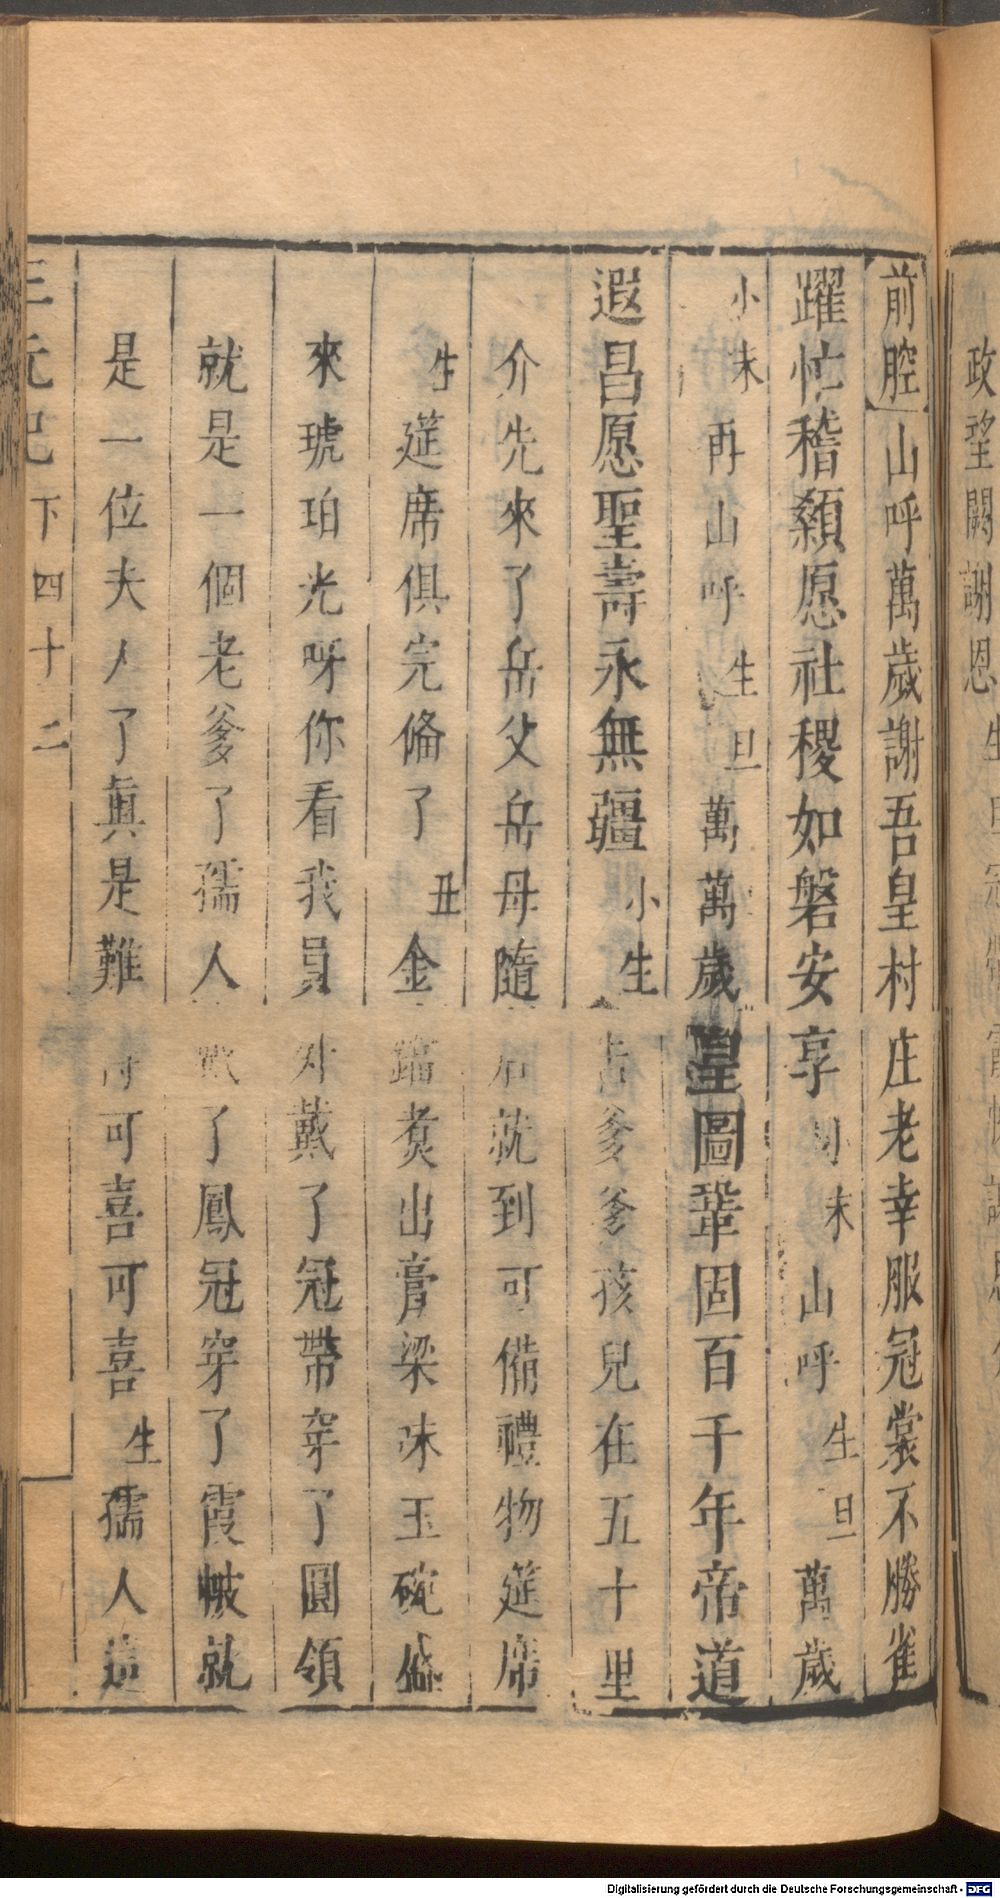 政望闕謝恩
前腔山呼萬歲謝吾皇村庄老幸服冠裳不勝雀
躍忙稽顙愿社稷如磐安享小末山呼生旦萬歲
小末再山呼生旦萬萬歲皇圖鞏固百千年帝道
遐昌愿聖壽永無疆小生告爹爹孩兒在五十里
介先來了岳父岳母隨後就到可備禮物筵席
生筵席俱完俻了丑金爐煮出膏梁味玉碗盛
來琥珀光呀你看我員外戴了冠帶穿了圓領
就是一個老爹了孺人戴了鳳冠穿了霞帔就
是一位夫人了真是難得可喜可喜生孺人這
三元記下四十二
Digitalisierung gefördert durch die Deutsche Forschungsgemeinschaft - DFG